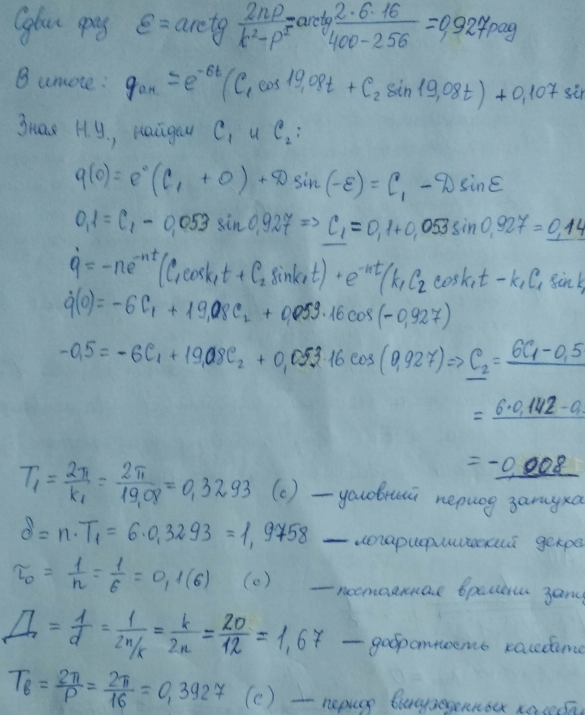 Сдвиг фаз ε = arctg 2np/(k²-p²) = arctg 2·6·16/(400-256) = 0,927 рад
В итоге: q_он = e^(-6t) (C₁ cos 19,08t + C₂ sin 19,08t) + 0,107 sin
Зная Н.У., найдем C₁ и C₂:
q(0) = e° (C₁ + 0) + D sin(-ε) = C₁ - D sin ε
0,1 = C₁ - 0,053 sin 0,927 => C₁ = 0,1 + 0,053 sin 0,927 = 0,14
q̇ = -ne^(-nt) (C₁ cos k₁t + C₂ sin k₁t) + e^(-nt) (k₁C₂ cos k₁t - k₁C₁ sin k₁
q̇(0) = -6C₁ + 19,08C₂ + 0,053·16 cos(-0,927)
-0,5 = -6C₁ + 19,08C₂ + 0,053·16 cos(0,927) => C₂ = 6C₁ - 0,5
= 6·0,142 - 0,
= -0,008
T₁ = 2π/k₁ = 2π/19,08 = 0,3293 (с) — условный период затуха
δ = n·T₁ = 6·0,3293 = 1,9758 — логарифмический декре
τ₀ = 1/n = 1/6 = 0,1(6) (с) — постоянная времени зату
Д = 1/d = 1/(2n/k) = k/2n = 20/12 = 1,67 — добротность колебате
Tв = 2π/p = 2π/16 = 0,3927 (с) — период вынужденных колеба